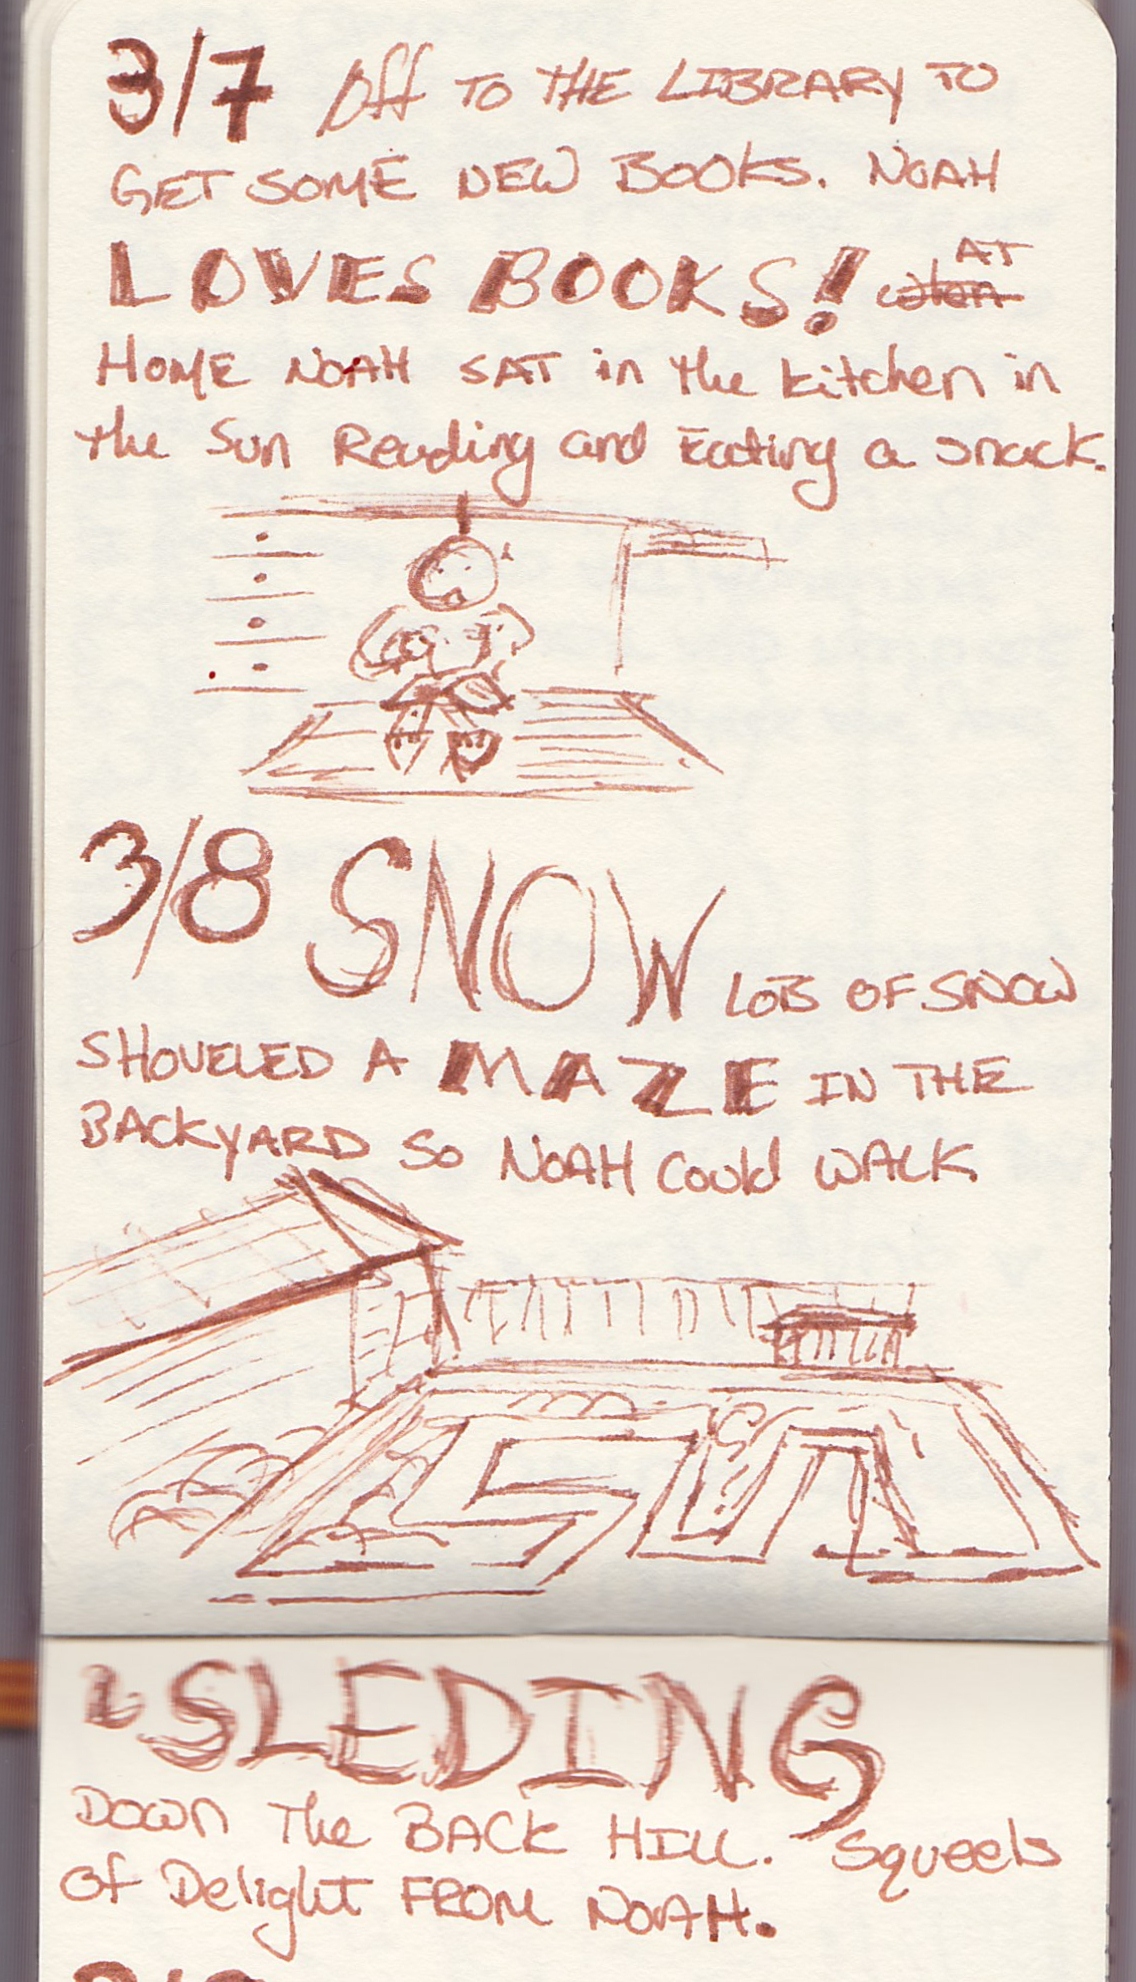 3/7 Off TO THE LIBRARY TO
GET SOME NEW BOOKS. NOAH
LOVES BOOKS! AT
HOME NOAH SAT in the kitchen in
the Sun Reading and Eating a snack.
3/8 SNOW LOTS OF SNOW
SHOVELED A MAZE IN THE
BACKYARD SO NOAH Could WALK
SLEDING
DOWN The BACK HILL. Squeels
Of Delight FROM NOAH.